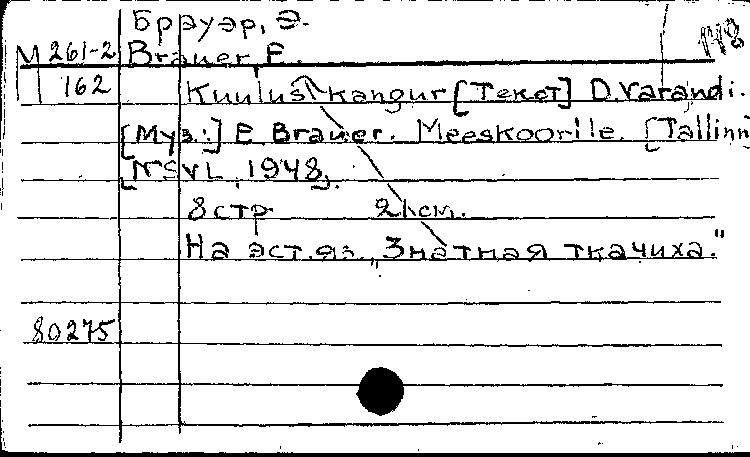 Брауэр, Э.
М 261-2 Brauer, E.
162 Kuulus kangur [Текст] D. Varandi.
[Муз.:] E. Brauer. Meeskoorile. [Tallinn]
[NSVL, 1948].
8 стр. 21 см.
На эст. яз. „Знатная ткачиха."
80275